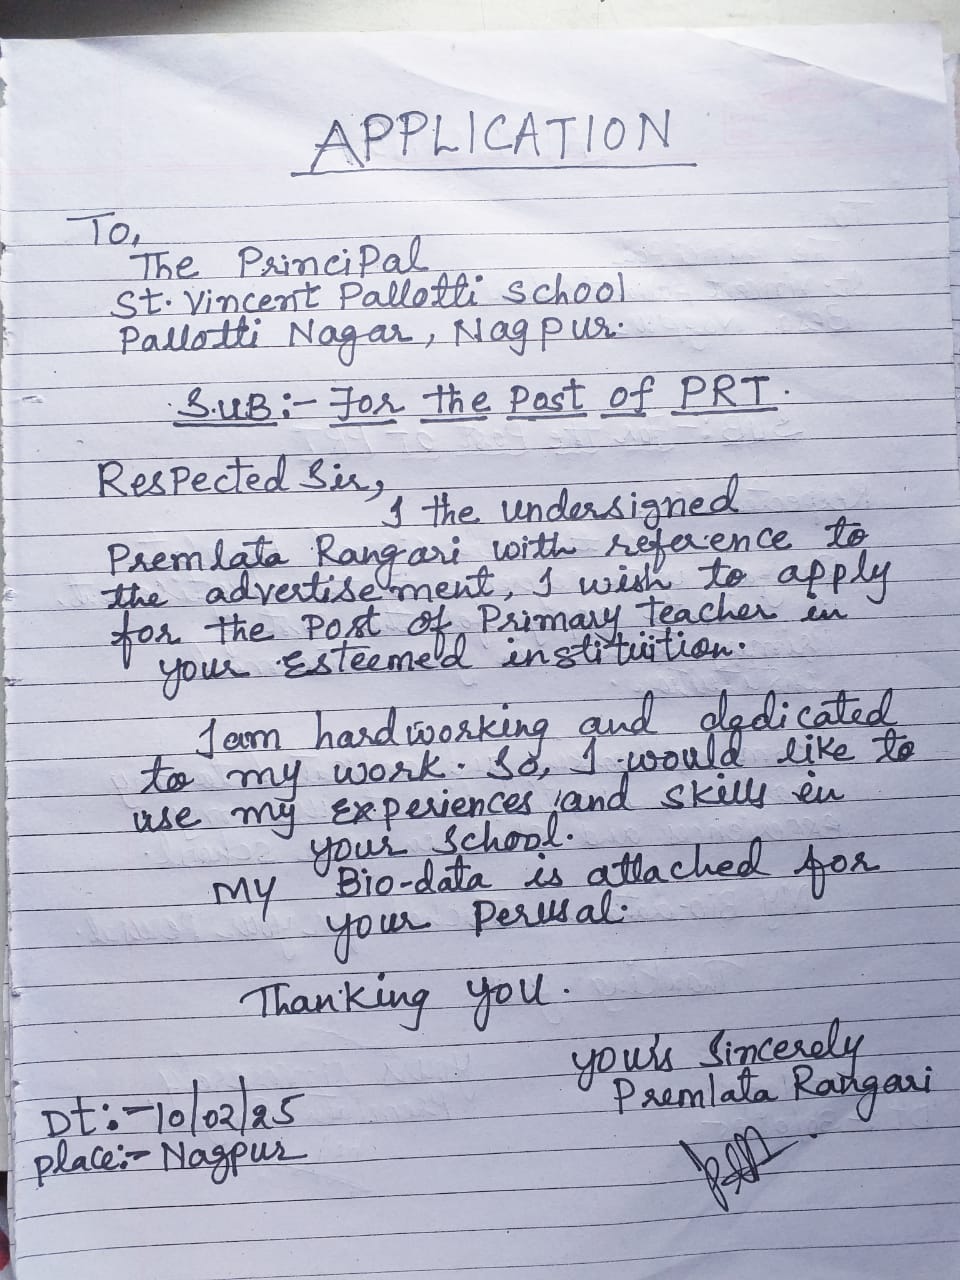 APPLICATION
To,
The Principal
St. Vincent Pallotti School
Pallotti Nagar, Nagpur.
SUB:- For the Post of PRT.
Respected Sir,
I the undersigned
Premlata Rangari with reference to
the advertisement, I wish to apply
for the Post of Primary Teacher in
your Esteemed instituition.
I am hardworking and dedicated
to my work. So, I would like to
use my Experiences and skills in
your School.
My Bio-data is attached for
your Perusal.
Thanking you.
your's Sincerely
Premlata Rangari
Dt:- 10/02/25
place:- Nagpur